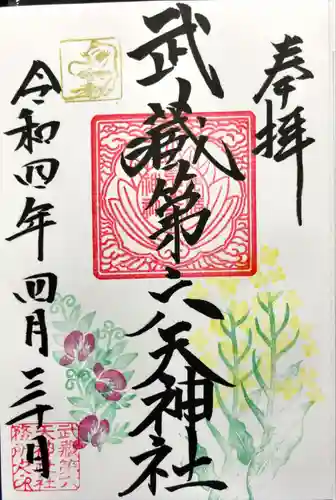 奉拝
武蔵第六天神社
令和四年四月三十日
武蔵第六
天神社